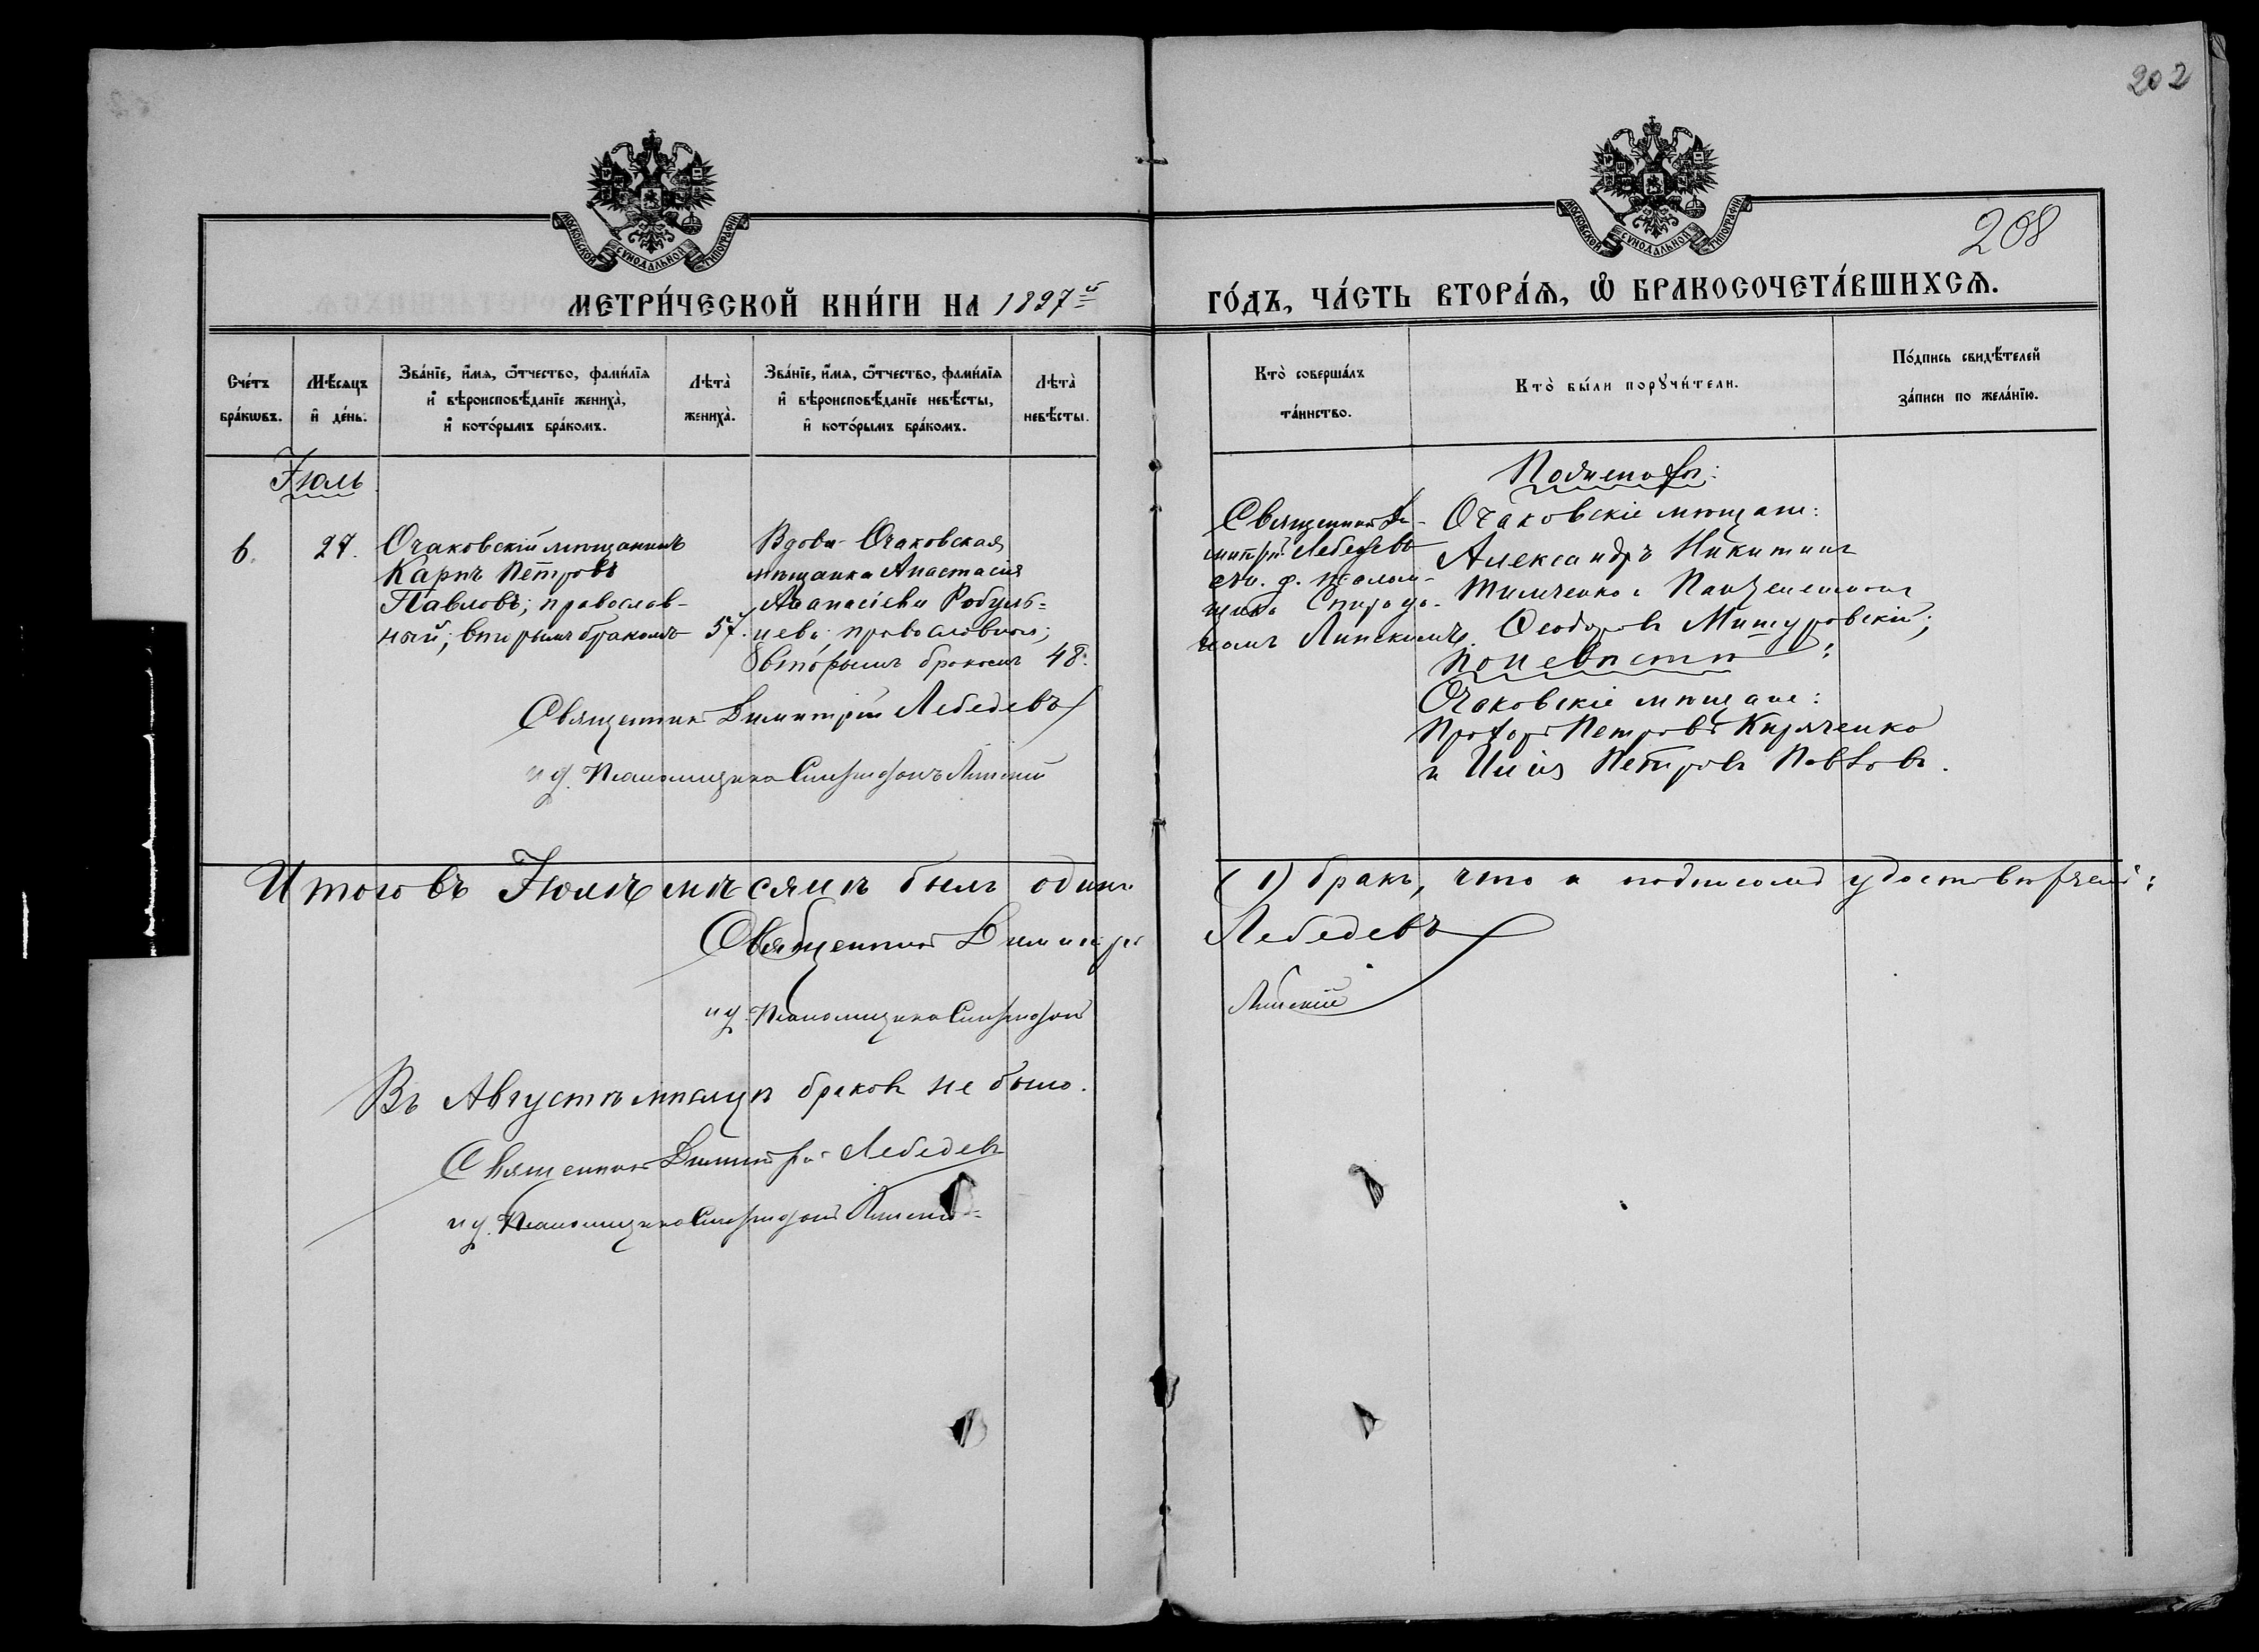 202
208
МОСКОВСКОЙ СѴНОДАЛЬНОЙ ТИПОГРАФІИ
МОСКОВСКОЙ СѴНОДАЛЬНОЙ ТИПОГРАФІИ
МЕТРИ́ЧЕСКОЙ КНИ́ГИ НА 1897й
ГО́ДЪ, ЧА́СТЬ ВТОРА́Ѧ, Ѽ БРАКОСОЧЕТА́ВШИХСѦ.
Сче́тъ бра́кѡвъ.
Мѣ́сяцъ и҆ де́нь.
Зва́нїе, и҆́мѧ, ѻ҆́тчество, фами́лїѧ и҆ вѣроисповѣ́данїе жениха̀, и҆ кото́рымъ бра́комъ.
Лѣта̀ жениха̀.
Зва́нїе, и҆́мѧ, ѻ҆́тчество, фами́лїѧ и҆ вѣроисповѣ́данїе невѣ́сты, и҆ кото́рымъ бра́комъ.
Лѣта̀ невѣ́сты.
Кто̀ соверша́лъ та́инство.
Кто̀ бы́ли порꙋчи́тели.
По́дпись свидѣ́телей за́писи по жела́нїю.
Іюль
6.
27.
Очаковскій мѣщанинъ
Карпъ Петровъ
Павловъ; православ-
ный; вторымъ бракомъ
57.
Вдова Очаковская
мѣщанка Анастасія
Аѳанасіева
нева; православная;
вторымъ бракомъ
48.
Священникъ Ди-
митрій Лебедевъ
съ и. д. псалом-
щика Спиридо-
номъ Липскимъ.
По женихѣ:
Очаковскіе мѣщане:
Александръ Никитинъ
Тимченко и Пантелеимонъ
Ѳеодоровъ
По невѣстѣ:
Очаковскіе мѣщане:
Прохоръ Петровъ Кириченко
и Илія Петровъ Павловъ.
Священникъ Димитрій Лебедевъ
и д. Псаломщика Спиридонъ Липскій
Итого въ Іюлѣ мѣсяцѣ былъ одинъ (1) бракъ, что и подписомъ удостовѣряемъ:
Священникъ Димитрій Лебедевъ
и д. Псаломщика Спиридонъ Липскій
Въ Августѣ мѣсяцѣ браковъ не было.
Священникъ Димитрій Лебедевъ
и д. Псаломщика Спиридонъ Липскій